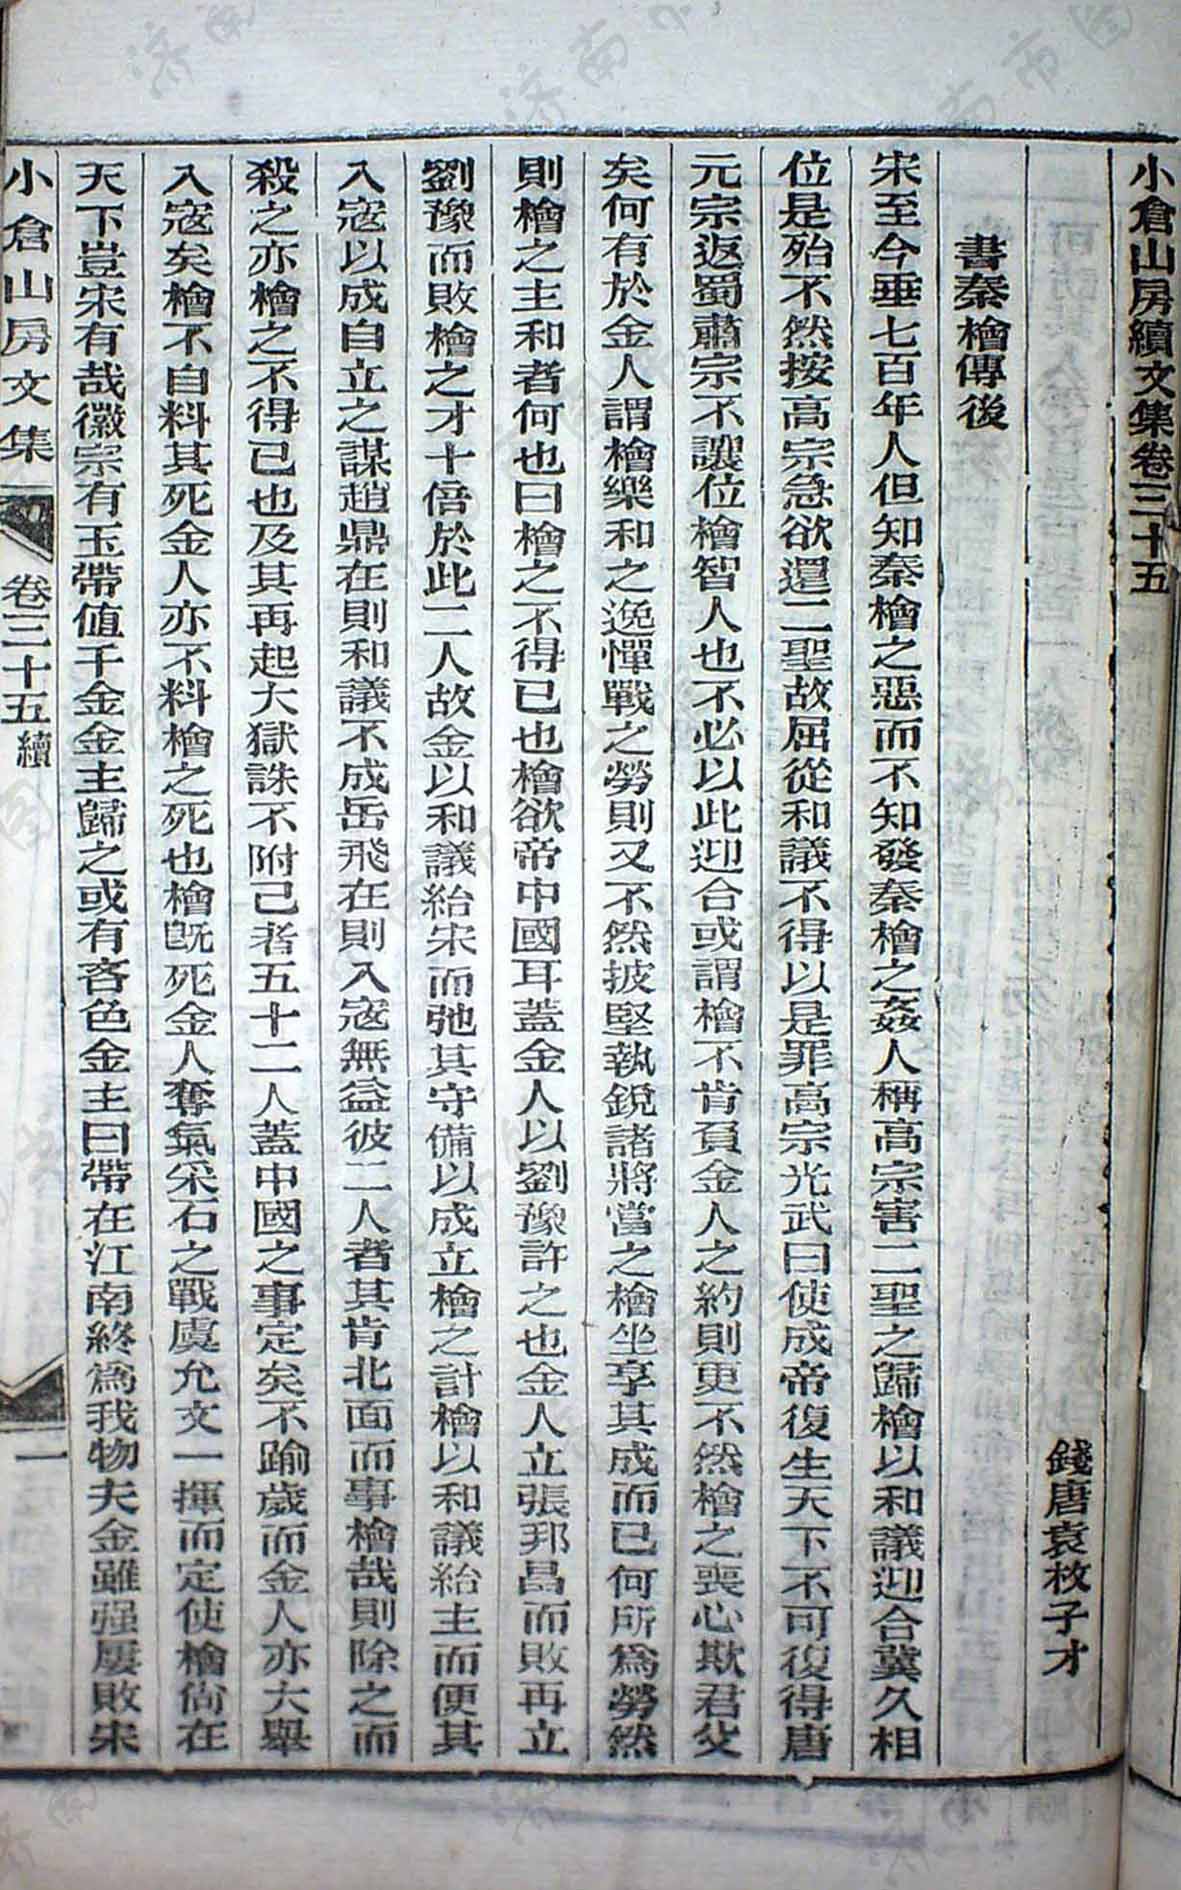 小倉山房續文集卷三十五
錢唐袁枚子才
書秦檜傳後
宋至今垂七百年人但知秦檜之惡而不知發秦檜之姦人稱高宗害二聖之歸檜以和議迎合冀久相
位是殆不然按高宗急欲還二聖故屈從和議不得以是罪高宗光武曰使成帝復生天下不可復得唐
元宗返蜀肅宗不讓位檜智人也不必以此迎合或謂檜不肯負金人之約則更不然檜之喪心欺君父
矣何有於金人謂檜樂和之逸憚戰之勞則又不然披堅執銳諸將當之檜坐享其成而已何所爲勞然
則檜之主和者何也曰檜之不得已也檜欲帝中國耳蓋金人以劉豫許之也金人立張邦昌而敗再立
劉豫而敗檜之才十倍於此二人故金以和議紿宋而弛其守備以成立檜之計檜以和議紿主而便其
入寇以成自立之謀趙鼎在則和議不成岳飛在則入寇無益彼二人者其肯北面而事檜哉則除之而
殺之亦檜之不得已也及其再起大獄誅不附己者五十二人蓋中國之事定矣不踰歲而金人亦大舉
入寇矣檜不自料其死金人亦不料檜之死也檜旣死金人奪氣采石之戰虞允文一揮而定使檜尙在
天下豈宋有哉徽宗有玉帶值千金金主歸之或有吝色金主曰帶在江南終爲我物夫金雖强屢敗宋
小倉山房文集
卷三十五
續
一